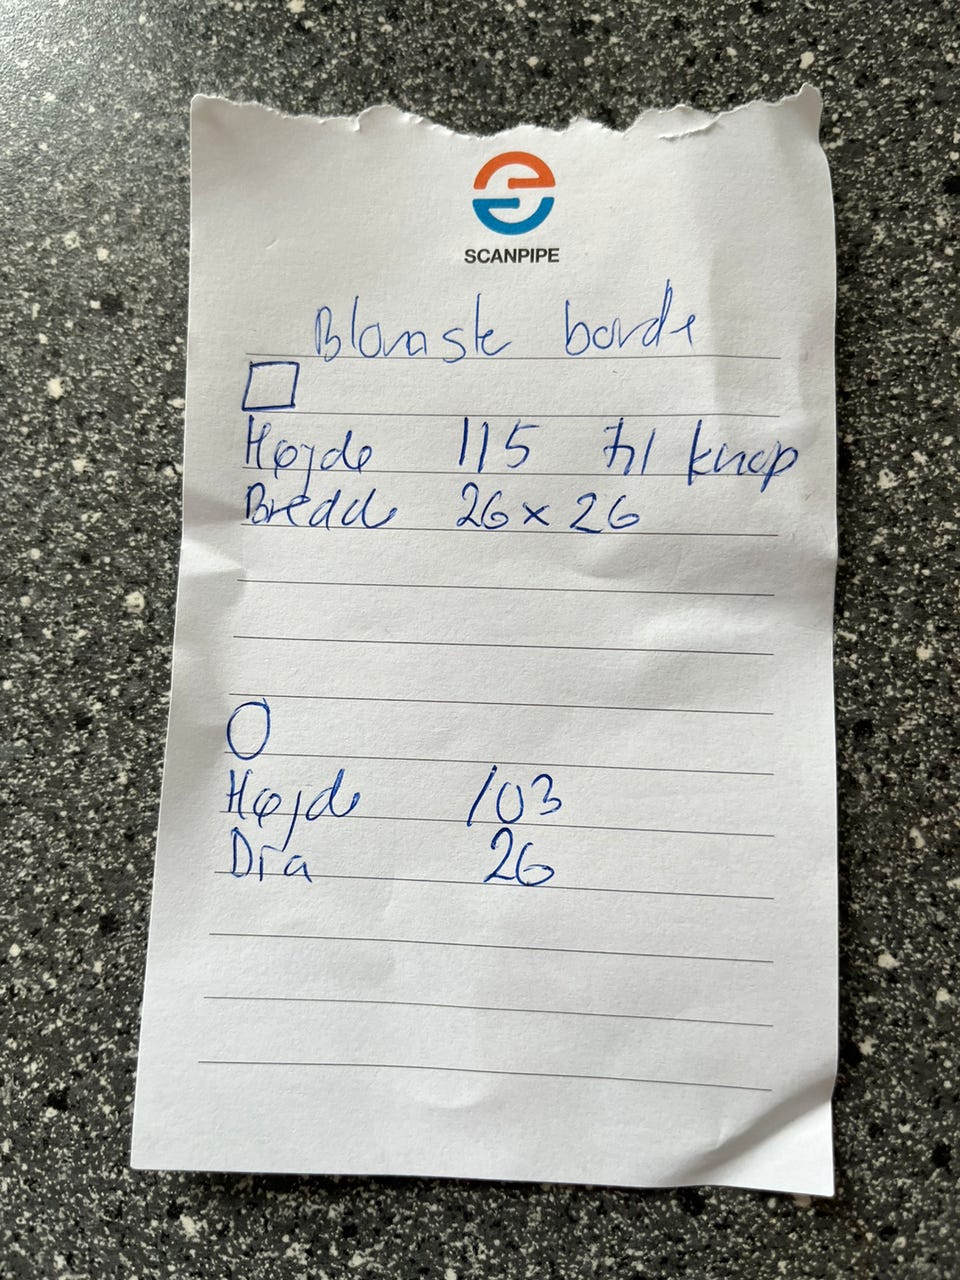 SCANPIPE
Blomste borde
Højde 115 til knop
Bredde 26 x 26
Højde 103
Dia 26